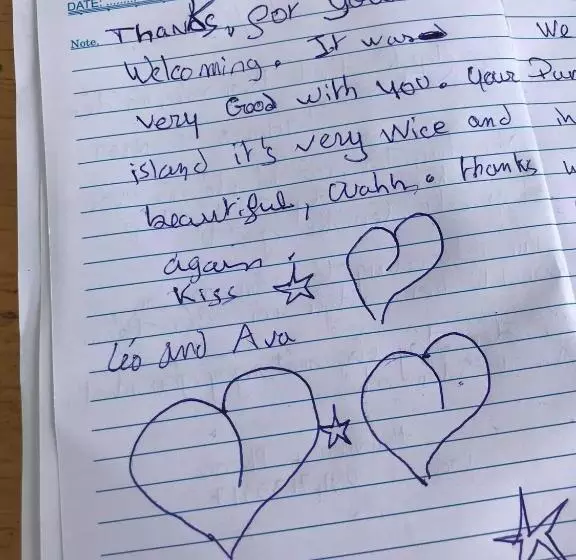 DATE:
Note. Thanks, for you
Welcoming. It was We
very Good with you. Your
island it's very Nice and in
beautiful, Ouahh. thanks
again!
Kiss
Léo and Ava